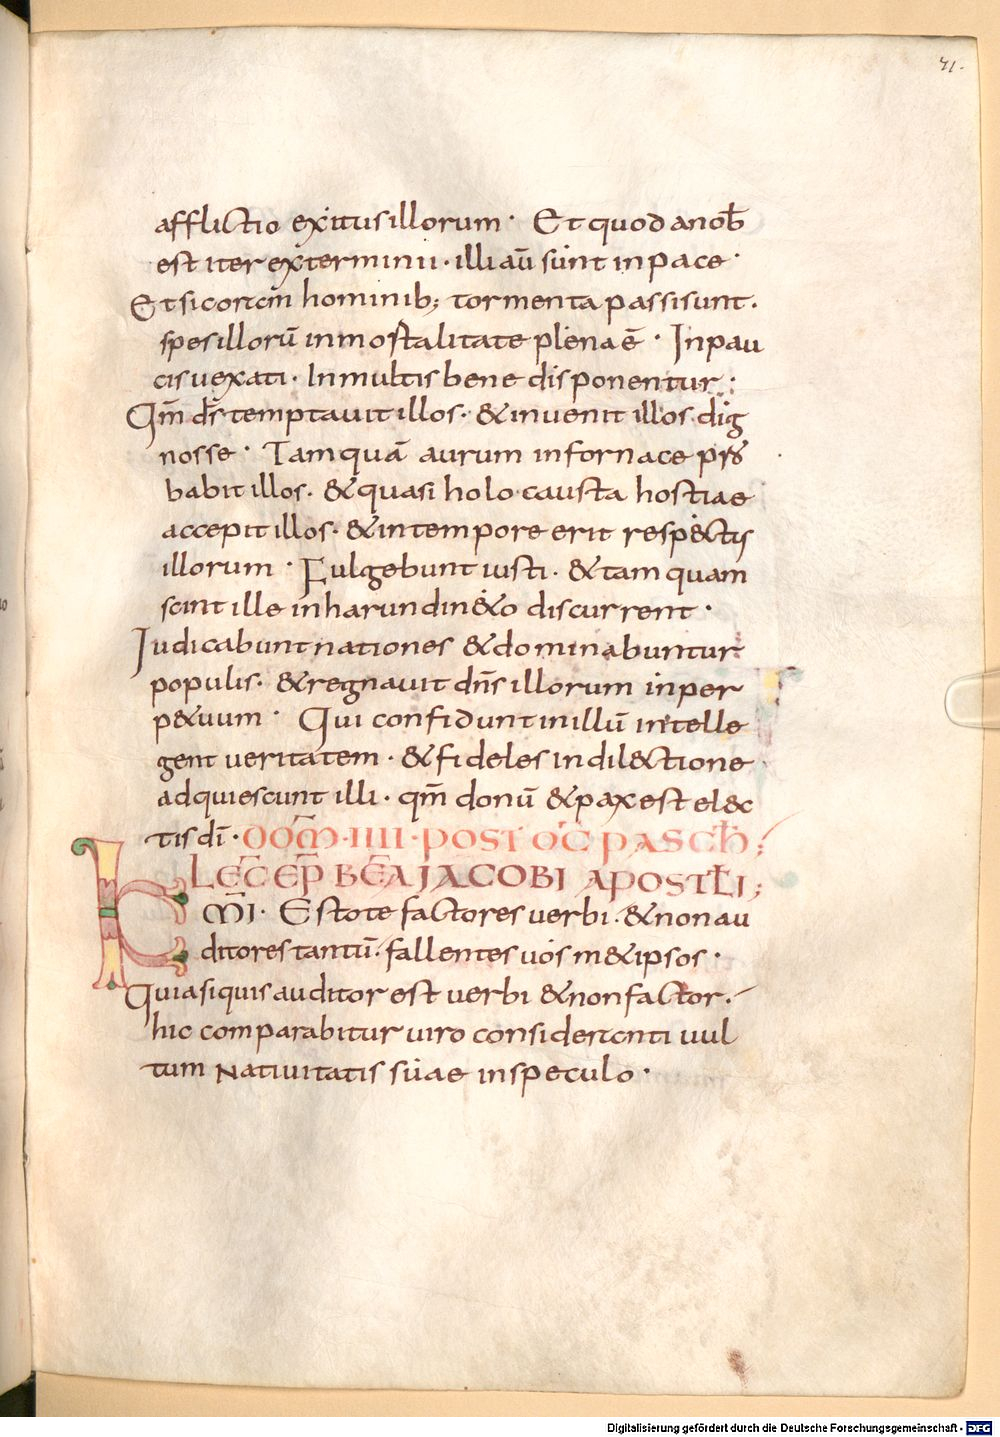 71.
afflictio exitus illorum · Et quod a nob̄
est iter exterminii · illi aū sunt in pace ·
Et si coram hominib; tormenta passi sunt.
spes illorū inmortalitate plena ē · In pau
cis uexati · In multis bene disponentur :
Qm̄ ds̄ temptauit illos · & inuenit illos dig
nosse · Tamquā aurum in fornace pro
babit illos · & quasi holocausta hostiae
accepit illos · & in tempore erit resp&ctus
illorum · Fulgebunt iusti · & tamquam
scintille in harundin&o discurrent ·
Iudicabunt nationes & dominabuntur
populis · & regnauit dn̄s illorum in per
p&uum · Qui confidunt in illū intelle
gent ueritatem · & fideles in dil&ctione
adquiescunt illi · qm̄ donū & pax est el&c
tis dī · DOM̄ · IIII · POST OC̄T PASCH̄;
LEC̄ EP̄ BEĀ IACOBI APOSTL̄I;
K̄MI · Estote factores uerbi · & non au
ditores tantū · fallentes uosm&ipsos ·
Quia si quis auditor est uerbi & non factor ·
hic comparabitur uiro consideranti uul
tum natiuitatis suae in speculo ·
Digitalisierung gefördert durch die Deutsche Forschungsgemeinschaft - DFG